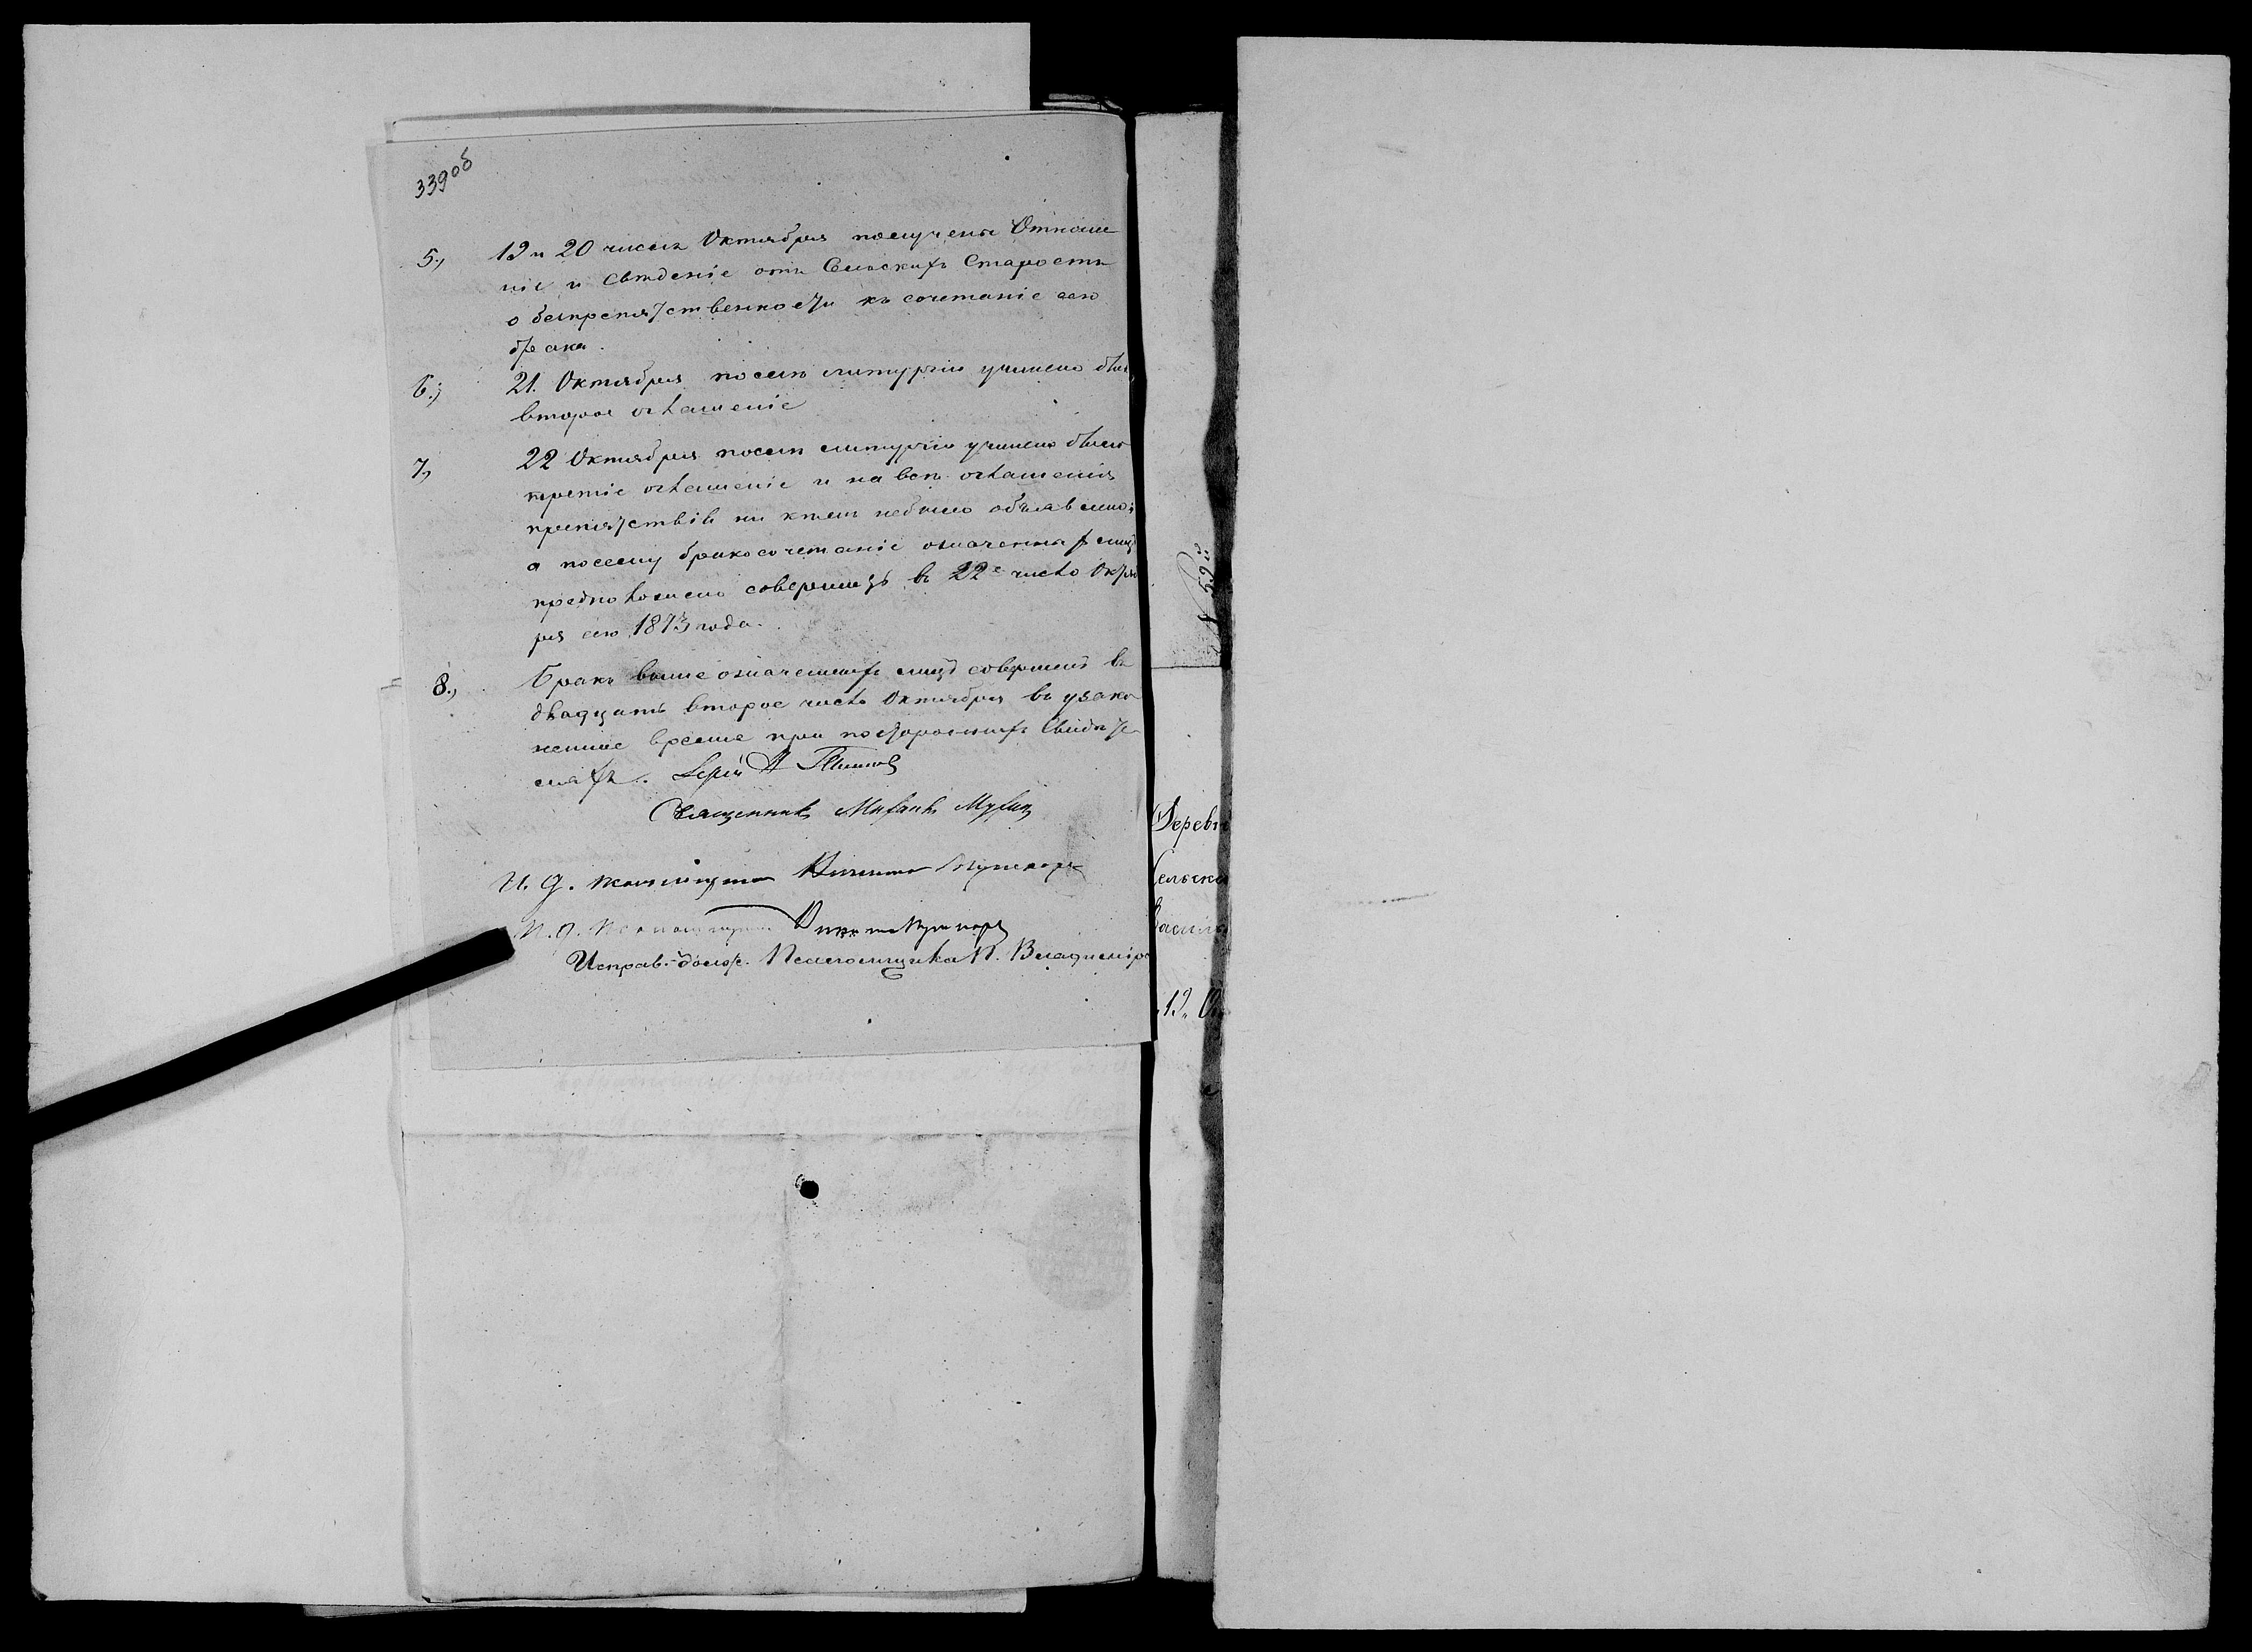 339 об
5., 19 и 20 числа Октября получены Отноше
ніе и свѣденіе отъ Сельскихъ Старостъ
о безпрепятственности къ сочетаніе сего
брака.
6., 21. Октября послѣ литургіи учинено было
второе оглашеніе
7., 22 Октября послѣ литургіи учинено было
третіе оглашеніе и на всѣ оглашенія
препятствій ни кѣмъ небыло объявлено;
а посему бракосочетаніе означенныхъ лицъ
предположено совершить въ 22е число Октяб
ря сего 1873 года.
8., Бракъ выше означенныхъ лицъ совершенъ въ
двадцать второе число Октября въ узако
ненное время при постороннихъ Свидѣте
ляхъ.
Священникъ Михаилъ
И. д.
И. д.
Исправ. долж. Псаломщика П. Владиміро
№ 59й
Деревн
Сельска
Васил
19